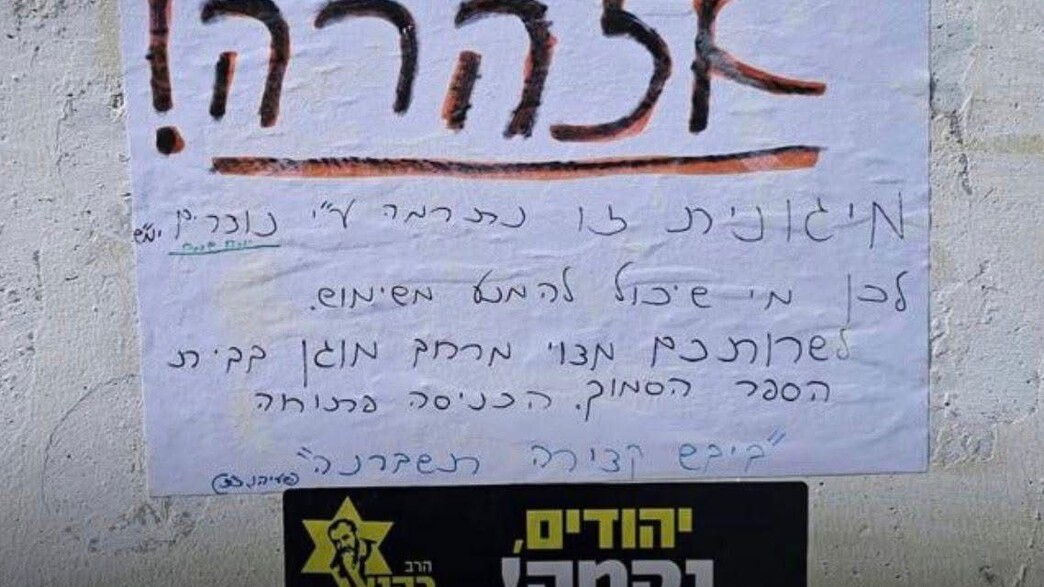 אזהרה!
מיגונית זו נתרמה ע"י נוכרים ימ"ש
לכן מי שיכול להמנע משימוש.
לשרותכם מצוי מרחב מוגן בבית
הספר הסמוך. הכניסה פתוחה
"ביבש קצירה תשברנה"
יהודים,
נקמה!
הרב
כהנא